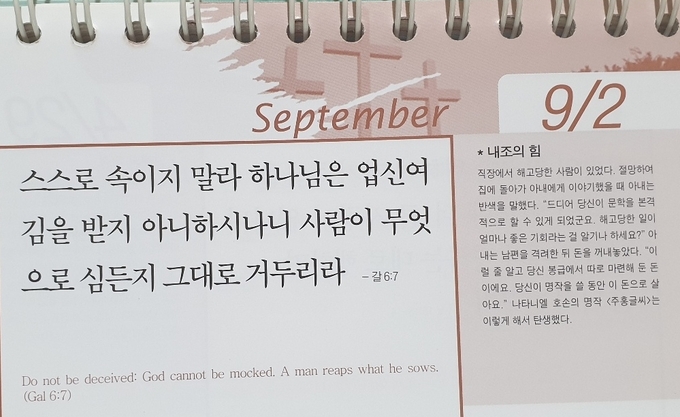 September
9/2
스스로 속이지 말라 하나님은 업신여
김을 받지 아니하시나니 사람이 무엇
으로 심든지 그대로 거두리라 – 갈 6:7
Do not be deceived: God cannot be mocked. A man reaps what he sows.
(Gal 6:7)
* 내조의 힘
직장에서 해고당한 사람이 있었다. 절망하여
집에 돌아가 아내에게 이야기했을 때 아내는
반색을 말했다. “드디어 당신이 문학을 본격
적으로 할 수 있게 되었군요. 해고당한 일이
얼마나 좋은 기회라는 걸 알기나 하세요?” 아
내는 남편을 격려한 뒤 돈을 꺼내놓았다. “이
럴 줄 알고 당신 봉급에서 따로 마련해 둔 돈
이에요. 당신이 명작을 쓸 동안 이 돈으로 살
아요.” 나타니엘 호손의 명작 <주홍글씨>는
이렇게 해서 탄생했다.
4/29